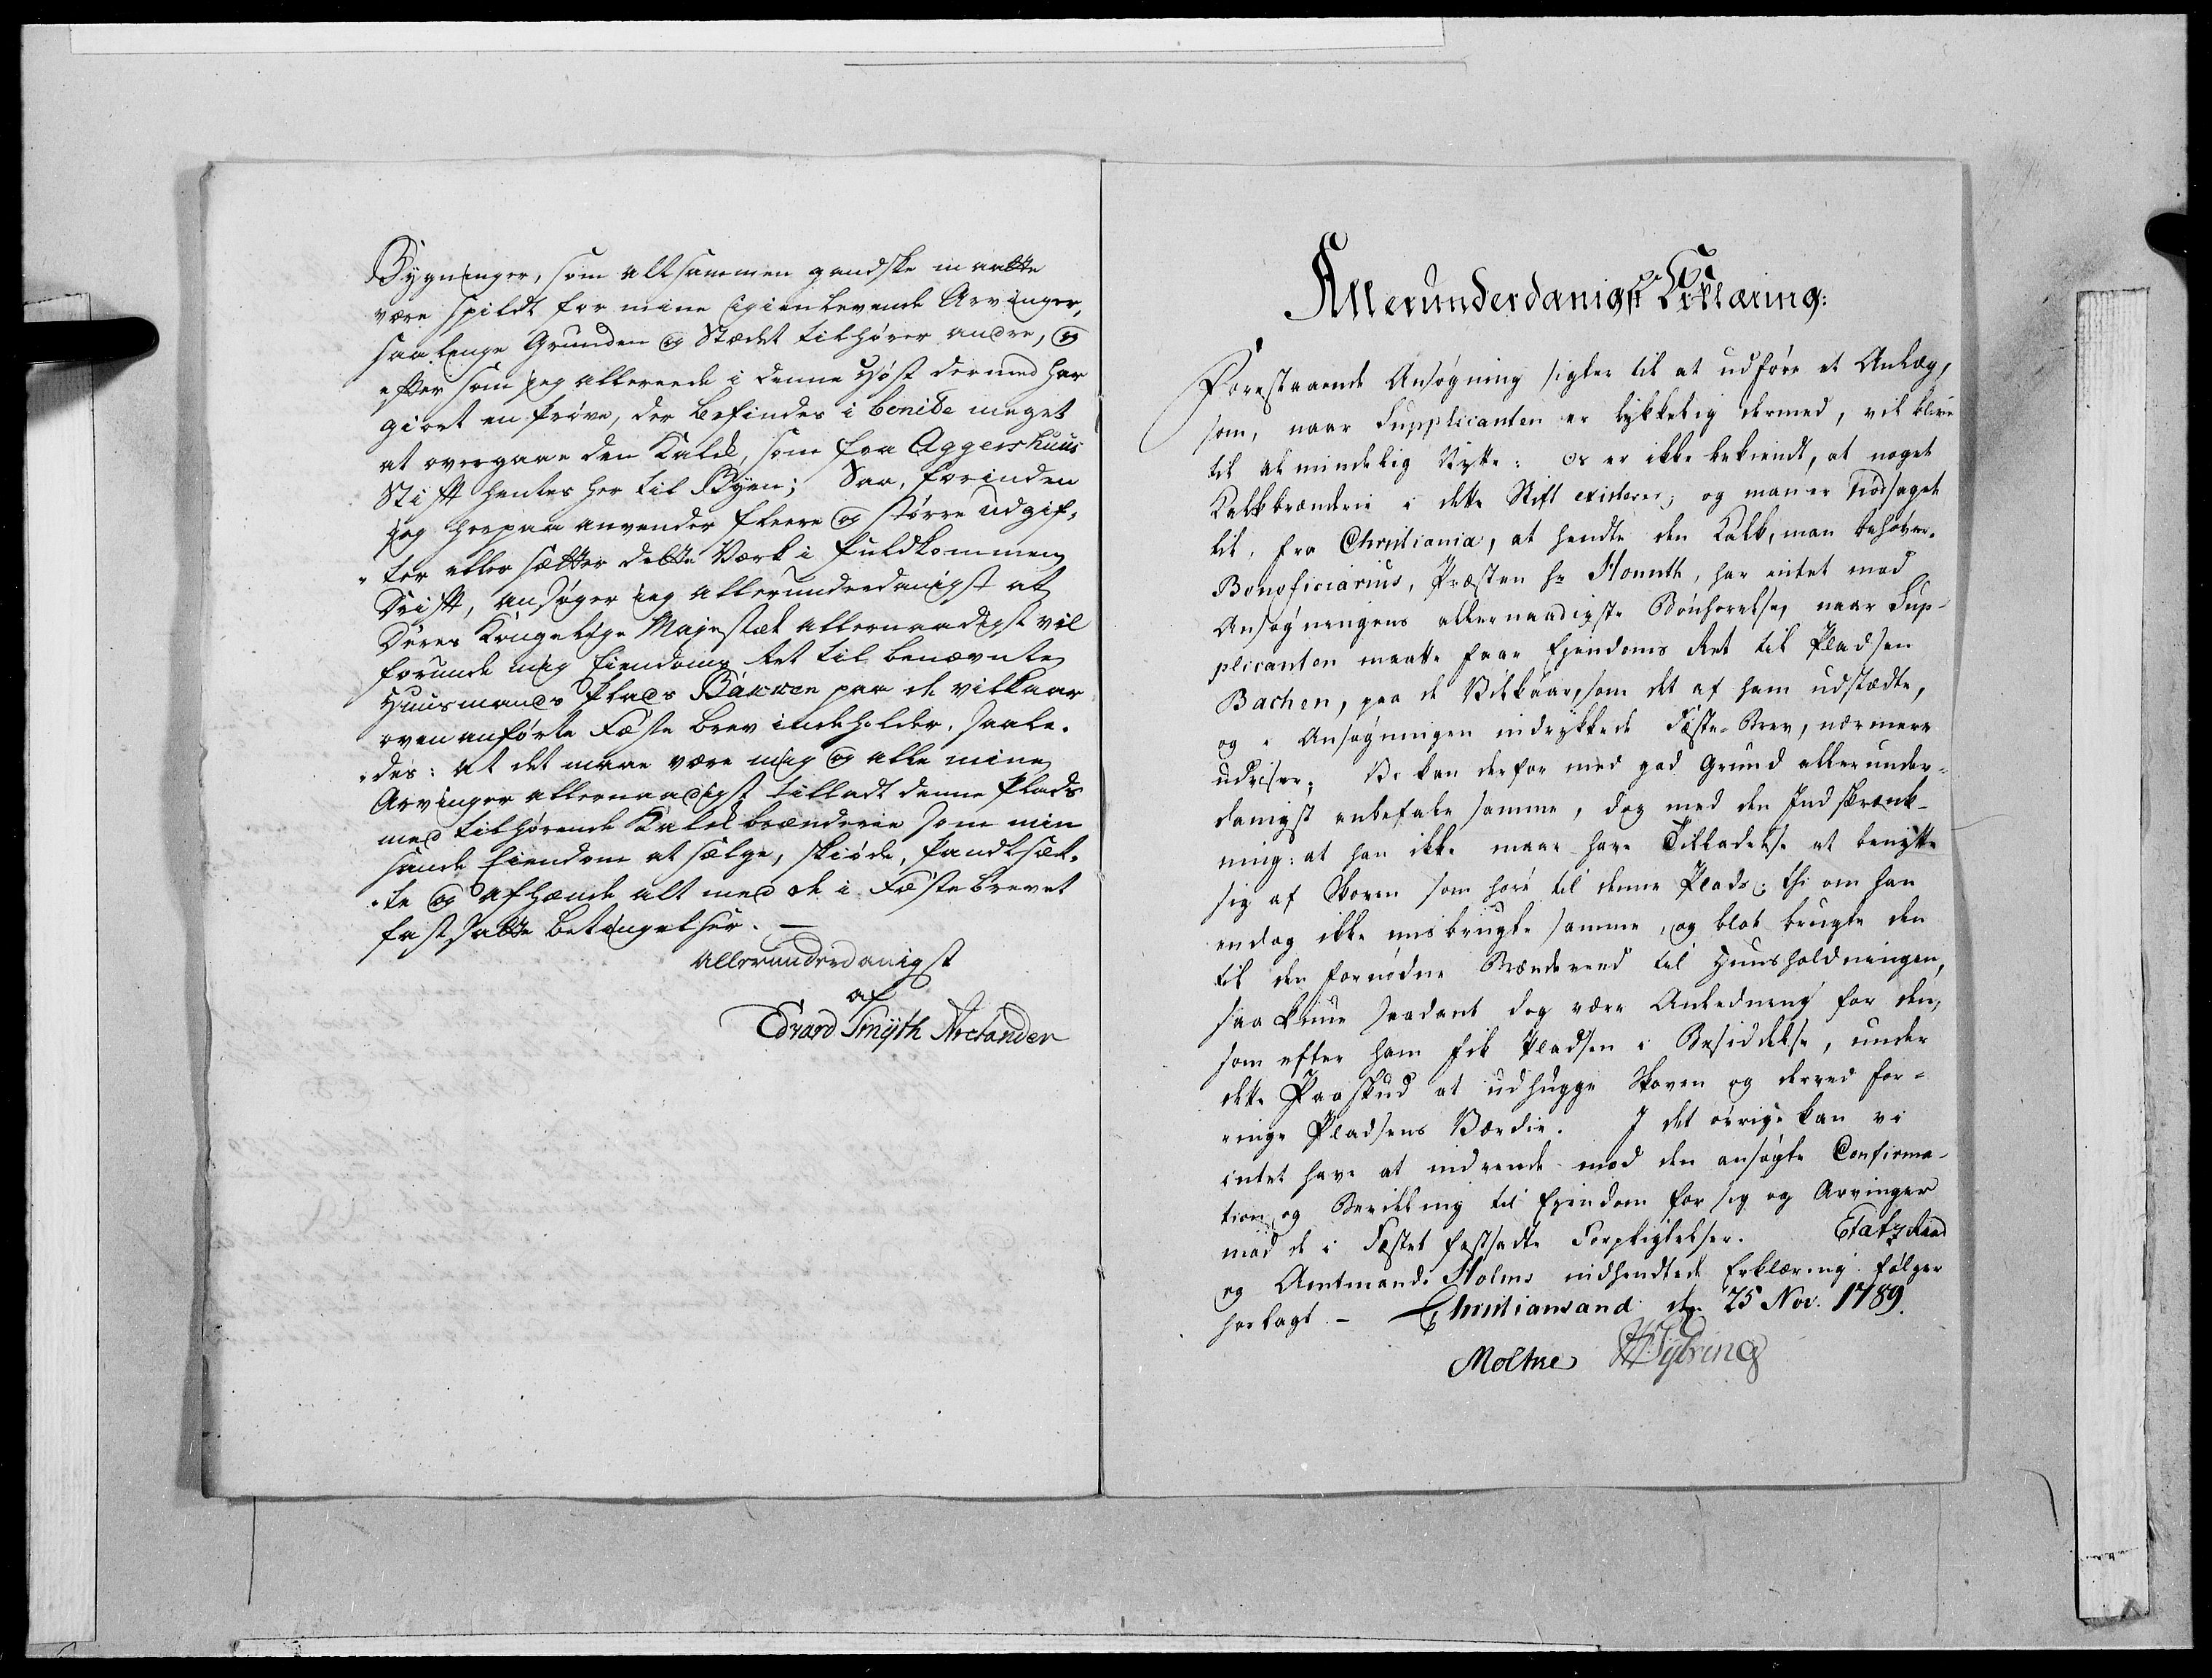 Bygninger, som allsammen gandske maatte
være spildt for mine igienlevende Arvinger,
saa lenge Grunden og Stædet tilhører andre, og
efter som jeg allereede i denne Høst dermed har
giort en Prøve, der befindes i bonide meget
at overgaae den Kalck, som fra Aggershuus
Stift hentes her til Byen; Saa, forinden
jeg herpaa anvender fleere og større Udgif-
ter eller sætter dette Værk i fuldkommen
Drift, ansøger ieg allerunderdanigst at
Deres Kongelige Majestæt allernaadigst vil
forunde mig Eiendoms Ret til benævnte
Huusmands Plads Backen paa de vilkaar
oven anførte Fæste brev indeholder, saale-
des: at det maae være mig og alle mine
Arvinger allernaadigst tilladt denne Plads
med tilhørende Kalckbrænderie som min
sande Eiendom at sælge, skiøde, Pandtsæt-
te og afhænde alt med de i Fæstebrevet
fastsatte betingelser. —
allerunderdanigst
af
Edvard Smijth Arctander
Allerunderdanigst Erklæring:
Forestaaende Ansøgning sigter til at udføre et Anlæg,
som, naar Supplicanten er lykkelig dermed, vil blive
til almindelig Nytte: Os er ikke bekiendt, at noget
Kalkbrænderie i dette Stift existerer; og man er nødsaget
til, fra Christiania, at hendte den Kalk, man behøver.
Beneficiarius, Præsten hr Hounth, har intet mod
Ansøgningens allernaadigste Bønhørelse, naar Sup-
plicanten maatte faae Ejendoms Ret til Pladsen
Bachen, paa de Vilkaar, som det af ham udstædte,
og i Ansøgningen indrykkede Fæste-Brev, nærmere
udviser; Vi kan derfor med god Grund allerunder-
danigst anbefale samme, dog med den Indskrænk-
ning: at han ikke maae have Tilladelse at benytte
sig af Skoven som høre til denne Plads; thi om han
endog ikke misbrugte samme, og blot brugte den
til den fornødne Brændeveed til Huusholdningen,
saa kunne saadant dog være Anledning for den,
som efter ham fik Pladsen i Besiddelse, under
dette Paaskud at udhugge Skoven og derved for-
ringe Pladsens Værdie. I det øvrige kan vi
intet have at indvende mod den ansøgte Confirma-
tion og Bevilling til Ejendom for sig og Arvinger
mod de i Fæstet fastsadte Forpligtelser. Etatz Raad
og Amtmand Holms indhendtede Erklæring følger
herlagt. — Christiansand den 25 Nov. 1789.
Moltke H Tybring